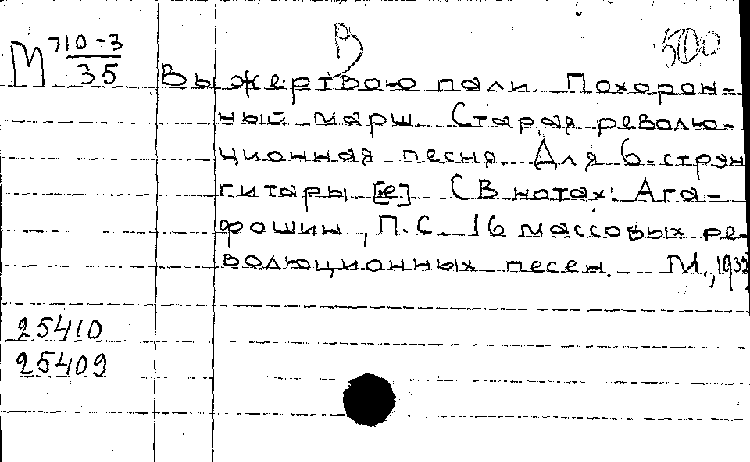 В 500
М 710-3/35
Вы жертвою пали. Похорон-
ный марш. Старая револю-
ционная песня. Для 6-струн
гитары [e]. (В нотах: Ага-
фошин, П.С. 16 массовых ре-
волюционных песен. М., 1932
25410
25409